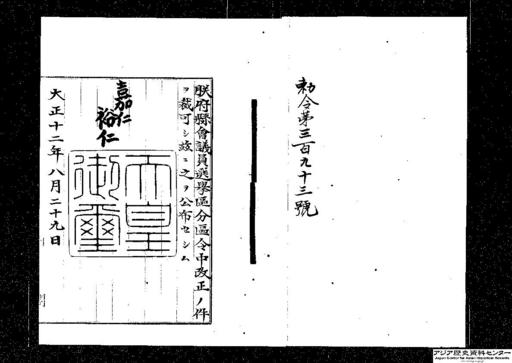 勅令第三百九十三號
朕府縣會議員選擧區分區令中改正ノ件
ヲ裁可シ玆ニ之ヲ公布セシム
嘉仁
裕仁
天皇
御璽
大正十二年八月二十九日
アジア歴史資料センター
Japan Center for Asian Historical Records